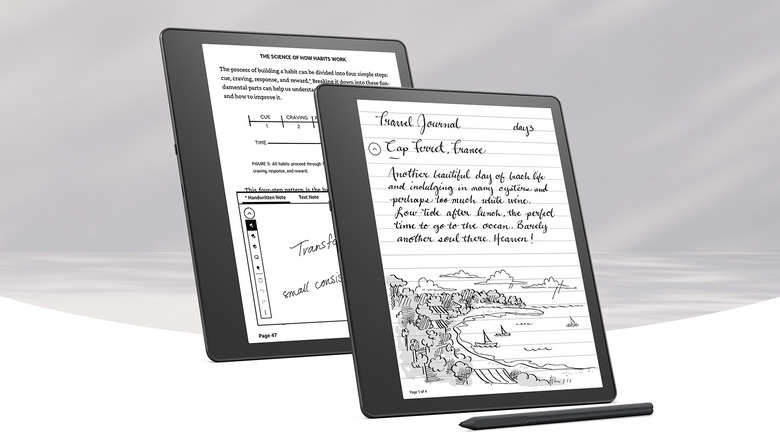 THE SCIENCE OF HOW HABITS WORK
The process of building a habit can be divided into four simple steps:
cue, craving, response, and reward.* Breaking it down into these fun-
damental parts can help us understa
and how to improve it.
CUE CRAVING
1 2
TIME
FIGURE 5: All habits proceed through
craving, response, and reward.
This four-step pattern is the
* Handwritten Note Text Note
Transf
small consis
Page 47
Travel Journal day 3
Cap Ferret, France
Another beautiful day of beach life
and indulging in many oysters and
perhaps too much white wine.
Low tide after lunch, the perfect
time to go to the ocean. Barely
another soul there. Heaven!
Page 1 of 4